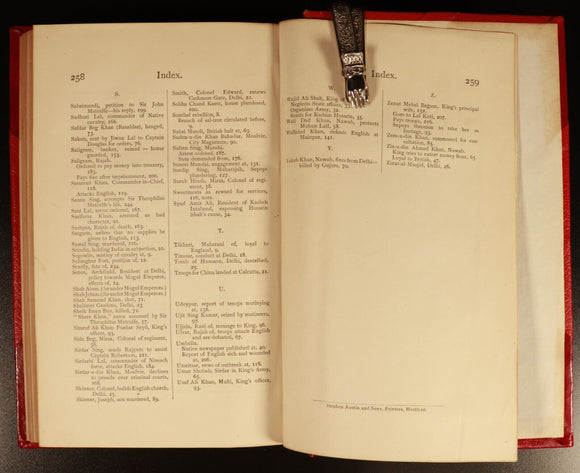 258
Index.
S.
Salatmundi, petition to Sir John
Metcalfe—his reply, 199.
Sadhari Lal, commander of Native
cavalry, 166.
Safdar Beg Khan (Resaldar), hanged,
73.
Saligram, banker, named — house
guarded, 153.
Saligram, Rajah.
Ordered to pay money into treasury,
183.
Pays fine after imprisonment, 200.
Sammud Khan, Commander-in-Chief,
118.
Attacks English, 119.
Sanna Sing attempts Sir Theophilus
Metcalfe's life, 244.
Sant Lal, arrest ordered, 187.
Sarifraz Khan, arrested as bad
character, 91.
Satgurs, orders that no supplies be
given to English, 113.
Sawal Sing, murdered, 116.
Scindia, holding India in subjection, 10.
Segowlie, mutiny of cavalry at, 9.
Selimghur Fort, position of, 12.
Sendly, fête of, 234.
Seton, Archibald, Resident at Delhi,
policy towards Mogul Emperor,
effects of, 14.
Shah Alam. (See under Mogul Emperors.)
Shah Jehan. (See under Mogul Emperors.)
Shah Samand Khan, shot, 71.
Shalimar Gardens, Delhi, 23
Sheik Iman Bux, killed, 71.
"Shere Khan," name assumed by Sir
Theophilus Metcalfe, 57.
Sharuf Ali Khan Foudar Seyd, King's
officer, 95.
Sidu Beg, Mirza, Colonel of regiment,
58.
Sirdar Sing, sends Rajputs to assist
Captain Robertson, 221.
Sirdarhi Lal, commander of Nimach
force, attacks English, 184.
Sirdir-u-din Khan, Moulvie, declines
to preside over criminal courts,
166.
Skinner, Colonel, builds English church,
Delhi, 25.
Skinner, Joseph, son murdered, 89.
Smith, Colonel Edward, renews
Cashmere Gate, Delhi, 21.
Soliha Chand Kaest, house plundered,
100.
Sonthal rebellion, 8
Breach of salt-tax circulated before,
9.
Subzi Mandi, British halt at, 63
Sudru-u-din Khan Bahadur, Moulvie,
City Magistrate, 90.
Sultan Sing, Mundia.
Arrest ordered, 187.
Sum demanded from, 176.
Sunari Mundai, engagement at, 131.
Surdip Sing, Maharajah, Sepoys
plundering, 127.
Surab Hindi, Mirza, Colonel of regi-
ment, 58.
Sweetmeats as reward for services,
126, note.
Syud Amir Ali, Resident of Kucheh
Istabund, espousing Hussein
Shah's cause, 34.
T.
Tikhari, Maharani of, loyal to
England, 9.
Timour, conduct at Delhi, 18.
Tomb of Humaon, Delhi, described,
25.
Troops for China landed at Calcutta, 21.
U.
Udeypur, report of troops mutinying
at, 138.
Ujit Sing Kumar, seized by mutineers,
93.
Ujjein, Rani of, message to King, 96.
Ulwar, Rajah of, troops attack English
and are defeated, 67.
Umballa.
Native newspaper published at, 40.
Report of English sick and wounded
at, 206.
Umritsur, news of outbreak at, 118.
Umur Shohab, Sirdar in King's Army,
65.
Usuf Ali Khan, Mufti, King's officer,
93.
Index.
259
W.
Wajid Ali Shah, King
Neglects State affairs,
Organizes Army, 32.
Sends for Karbam Hussein, 35.
Wali Dad Khan, Nawab, protects
Mohun Lall, 58.
Wallidad Khan, defeats English at
Maitpur, 222.
Y.
Yakub Khan, Nawab, flees from Delhi—
killed by Gujars, 70.
Z.
Zenat Mehal Begum, King's principal
wife, 132.
Goes to Lal Kuti, 207.
Pays troops, 216.
Sepoys threaten to take her as
hostage, 93.
Zia-u-din Khan, summoned for con-
sultation, 85.
Zia-u-din Ahmed Khan, Nawab.
King tries to extort money from, 65.
Loyal to British, 47.
Zinat-al-Musjid, Delhi, 26.
Stephen Austin and Sons, Printers, Hertford.